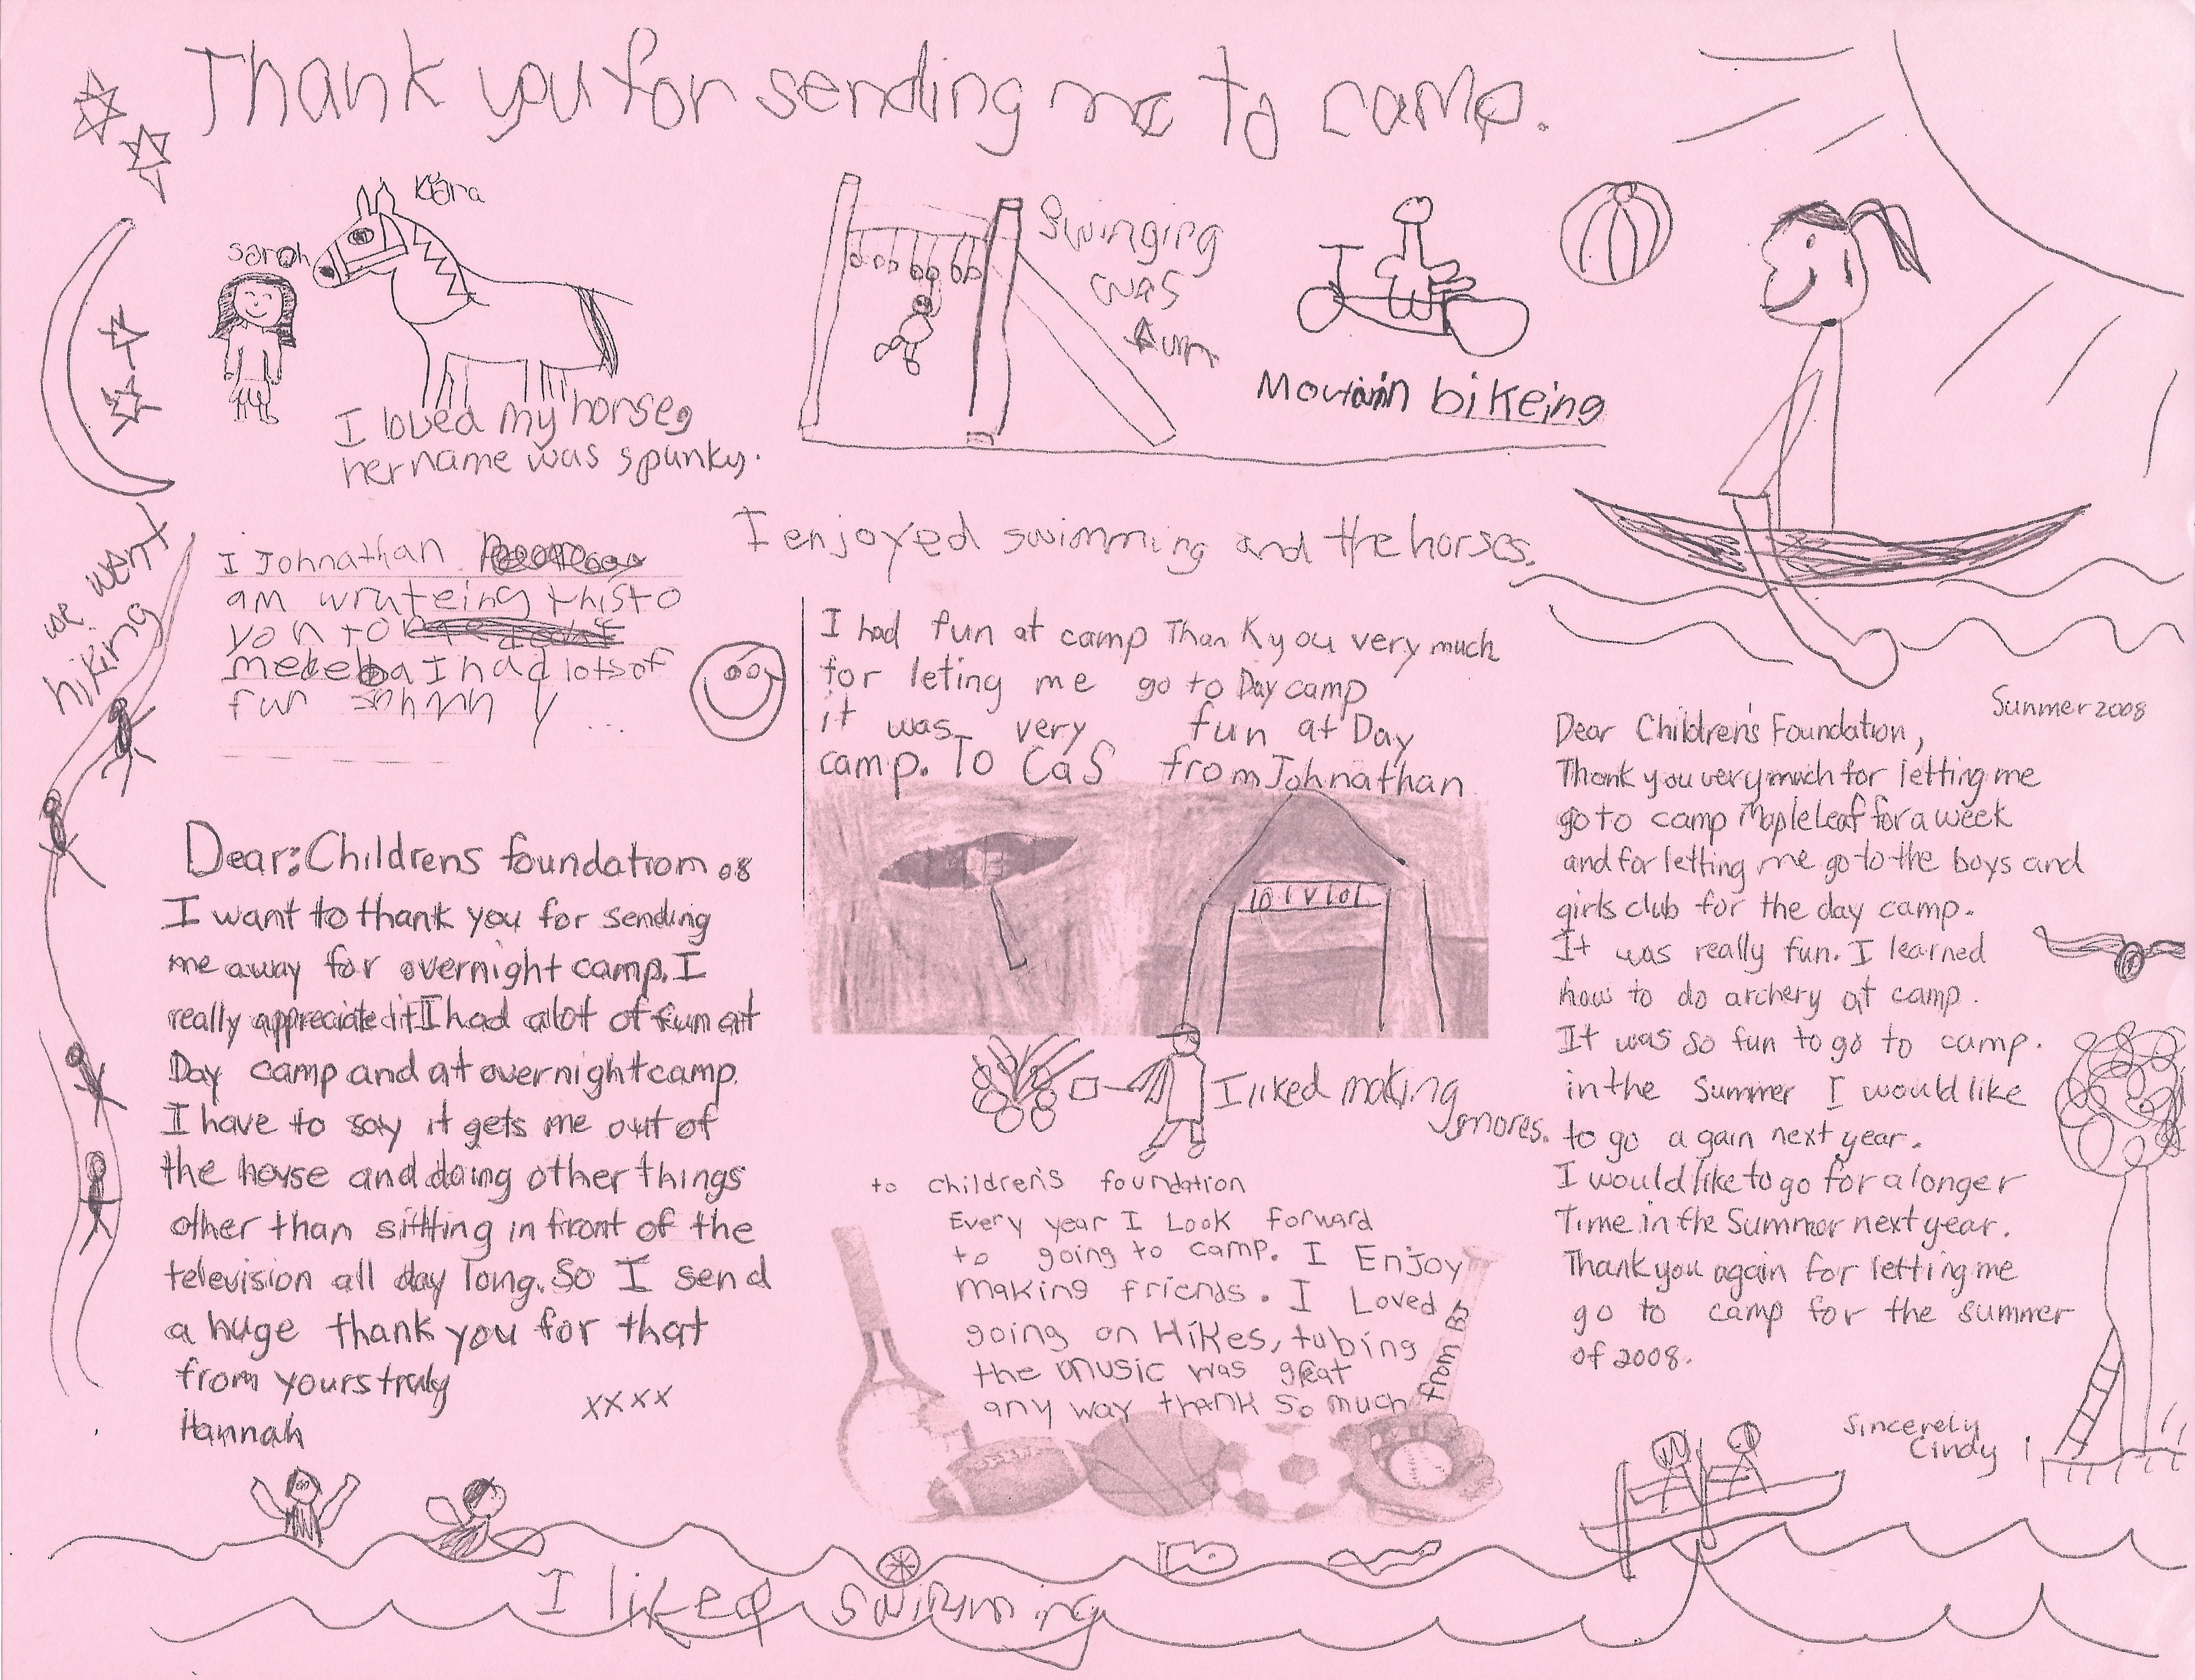 Thank you for sending me to camp.
Kiara
sarah
I loved my horse,
her name was spunky.
Swinging
was
fun
Mountain bikeing
we went
hiking
I enjoyed swimming and the horses.
I Johnathan
am wruteing this to
you to
I had lots of
fun Johnny ...
I had fun at camp Thank you very much
for leting me go to Day camp
it was very fun at Day
camp. To CaS from Johnathan
I liked making
smores.
Dear: Childrens foundation 08
I want to thank you for sending
me away for overnight camp. I
really appreciated it I had alot of fun at
Day camp and at overnight camp.
I have to say it gets me out of
the house and doing other things
other than sitting in front of the
television all day long. So I send
a huge thank you for that
from yours truly
xxxx
Hannah
to children's foundation
Every year I Look forward
to going to camp. I Enjoy
making friends. I Loved
going on Hikes, tubing
the music was great
any way thank so much
from BJ
Summer 2008
Dear Children's Foundation,
Thank you very much for letting me
go to camp Mapleleaf for a week
and for letting me go to the boys and
girls club for the day camp.
It was really fun. I learned
how to do archery at camp.
It was so fun to go to camp.
in the Summer I would like
to go again next year.
I would like to go for a longer
Time in the Summer next year.
Thank you again for letting me
go to camp for the summer
of 2008.
Sincerely
Cindy
I liked swimming